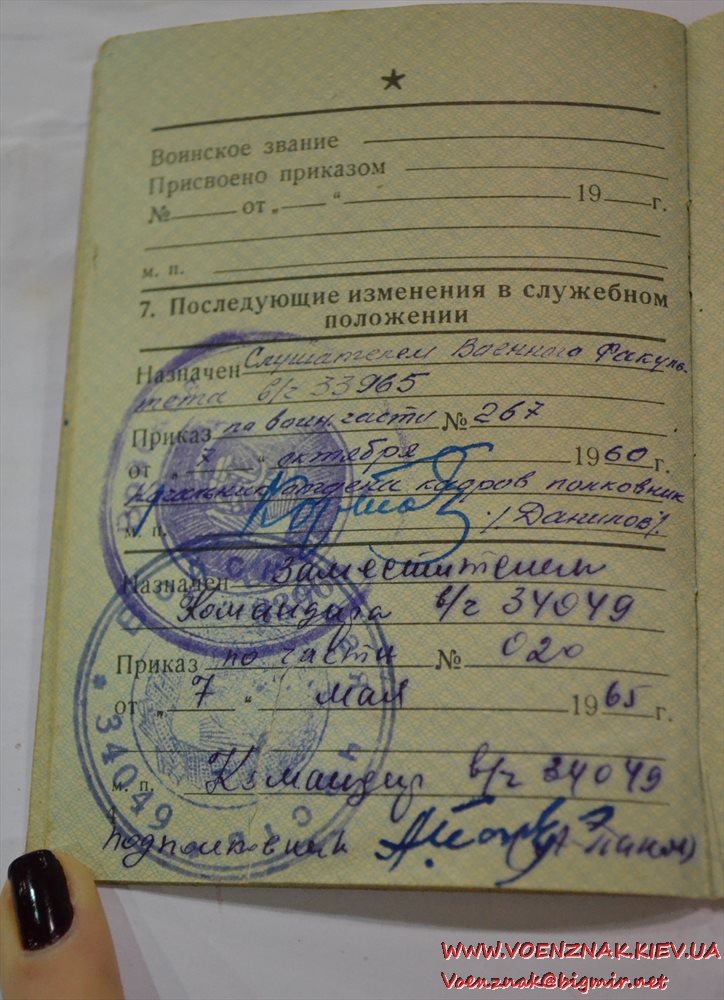 ★
Воинское звание
Присвоено приказом
№ от „ “ 19 г.
м. п.
7. Последующие изменения в служебном
положении
Назначен Слушателем Военного Факуль-
тета в/ч 33965
Приказ по воин. части № 267
от „ 7 “ октября 1960 г.
Начальник отдела кадров полковник
м. п. /Данилов/
Назначен Заместителем
Командира в/ч 34049
Приказ по части № 020
от „ 7 “ мая 1965 г.
м. п. Командир в/ч 34049
подполковник
4
* 34049 *
WWW.VOENZNAK.KIEV.UA
Voenznak@bigmir.net